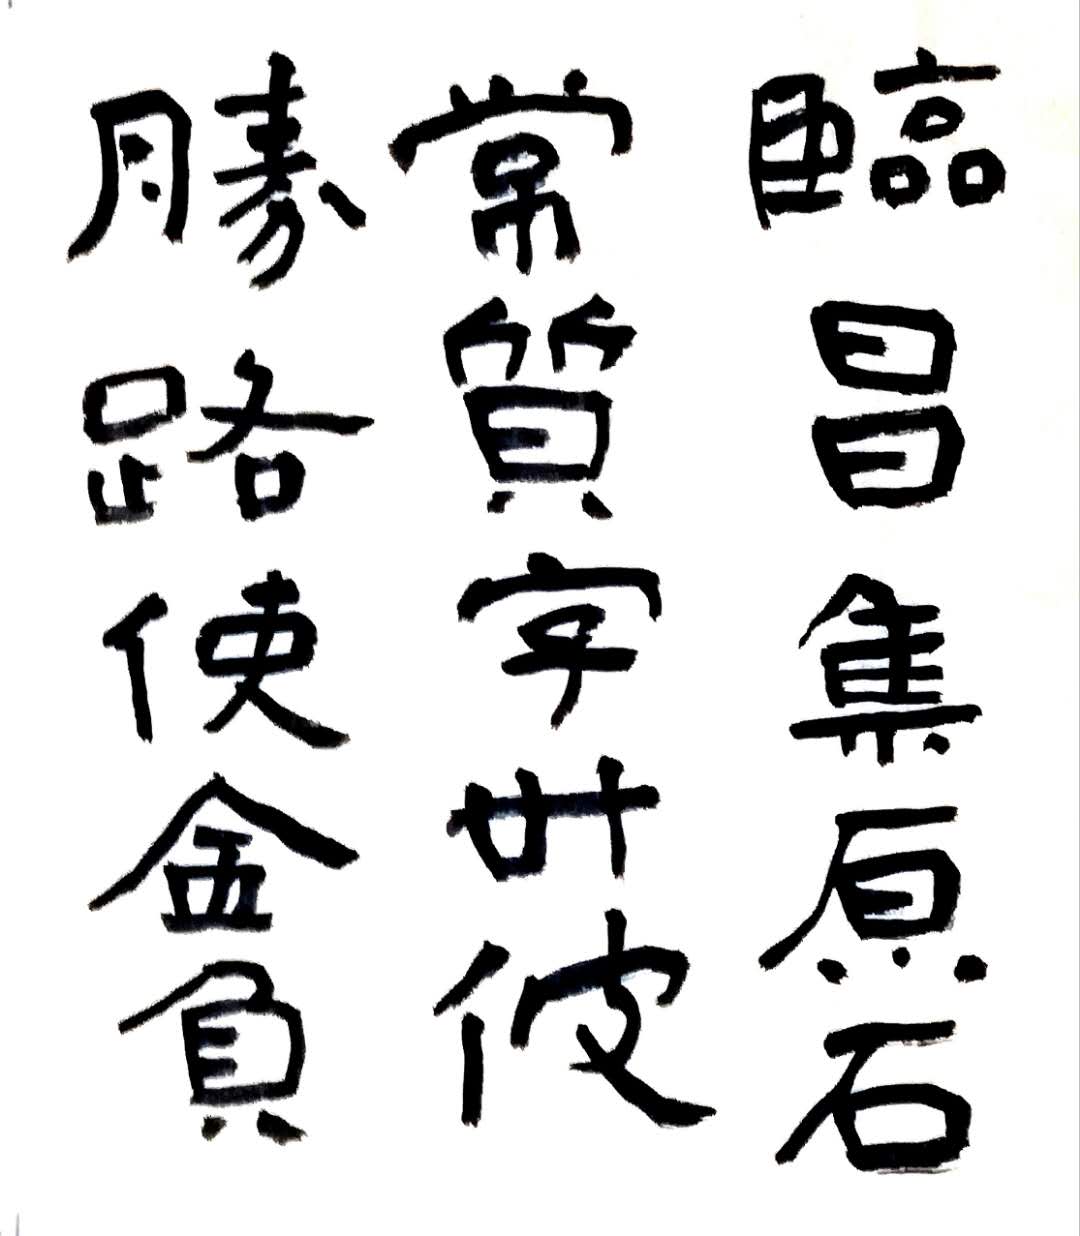 臨昌集原石
常質字世彼
勝路使金負